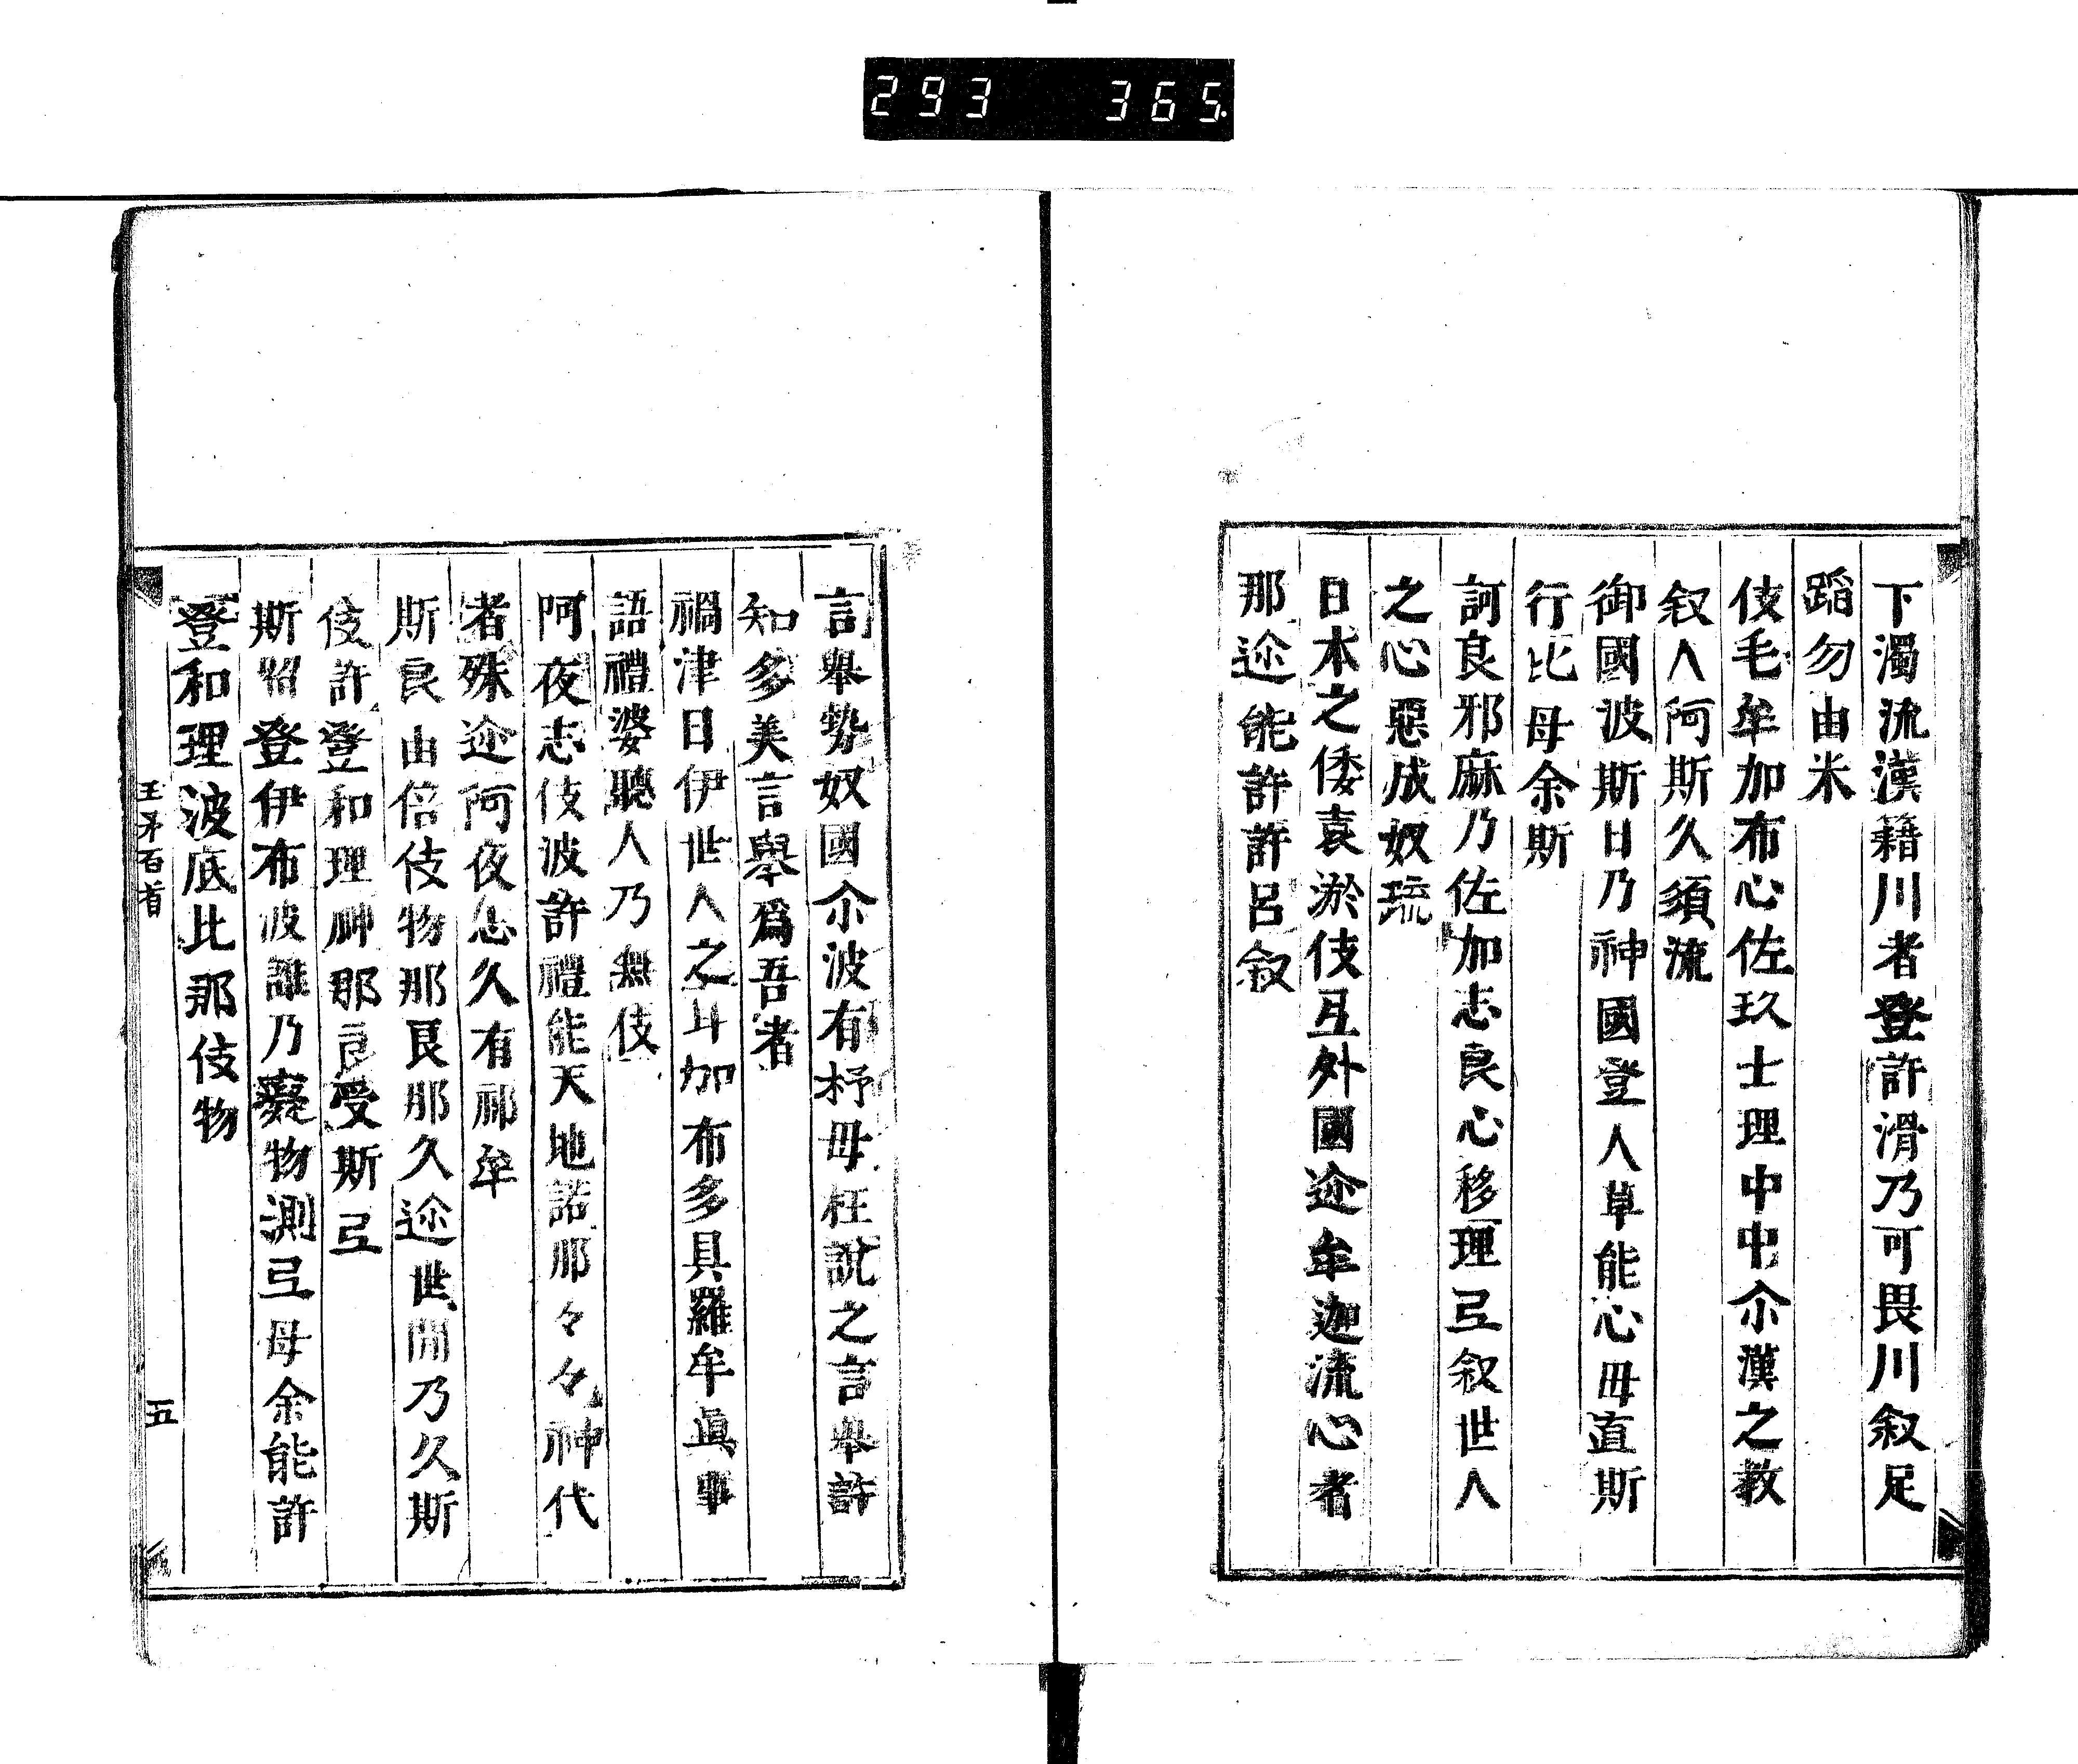 293 365
下濁流漢籍川者登許滑乃可畏川叙足
蹈勿由米
伎毛牟加布心佐玖士理中中尒漢之教
叙人阿斯久須流
御國波斯日乃神國登人草能心毋直斯
行比母余斯
訶良邪麻乃佐加志良心移理弖叙世人
之心惡成奴琉
日本之倭袁淤伎弖外國迩牟迦流心者
那迩能許許呂叙
言舉勢奴國尒波有杼毋枉説之言舉許
知多美言舉爲吾者
禍津日伊世人之斗加布多具羅牟眞事
語禮婆聽人乃無伎
阿夜志伎波許禮能天地諾那々々神代
者殊迩阿夜志久有祁牟
斯良由倍伎物那良那久迩世間乃久斯
伎許登和理神那良受斯弖
斯留登伊布波誰乃癡物測弖母余能許
登和理波底比那伎物
玉矛百首
五